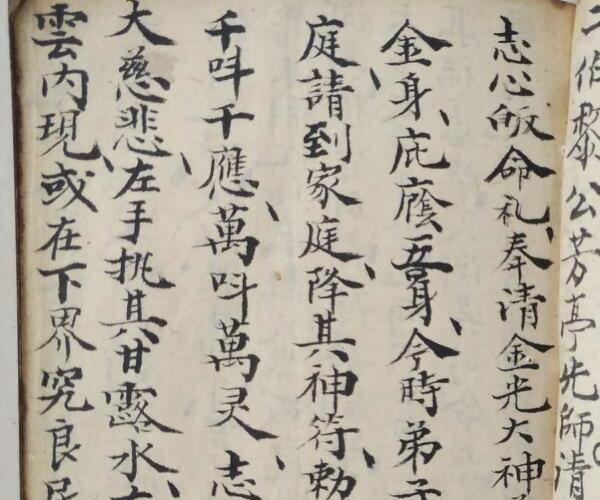 二伯黎公芳亭先師清
志心皈命礼奉清金光大神
金身庇廕吾身今時弟子
庭請到家庭降其神符勅
千呌千應萬呌萬灵志
大慈悲左手挑其甘露水
雲内現或在下界究良民